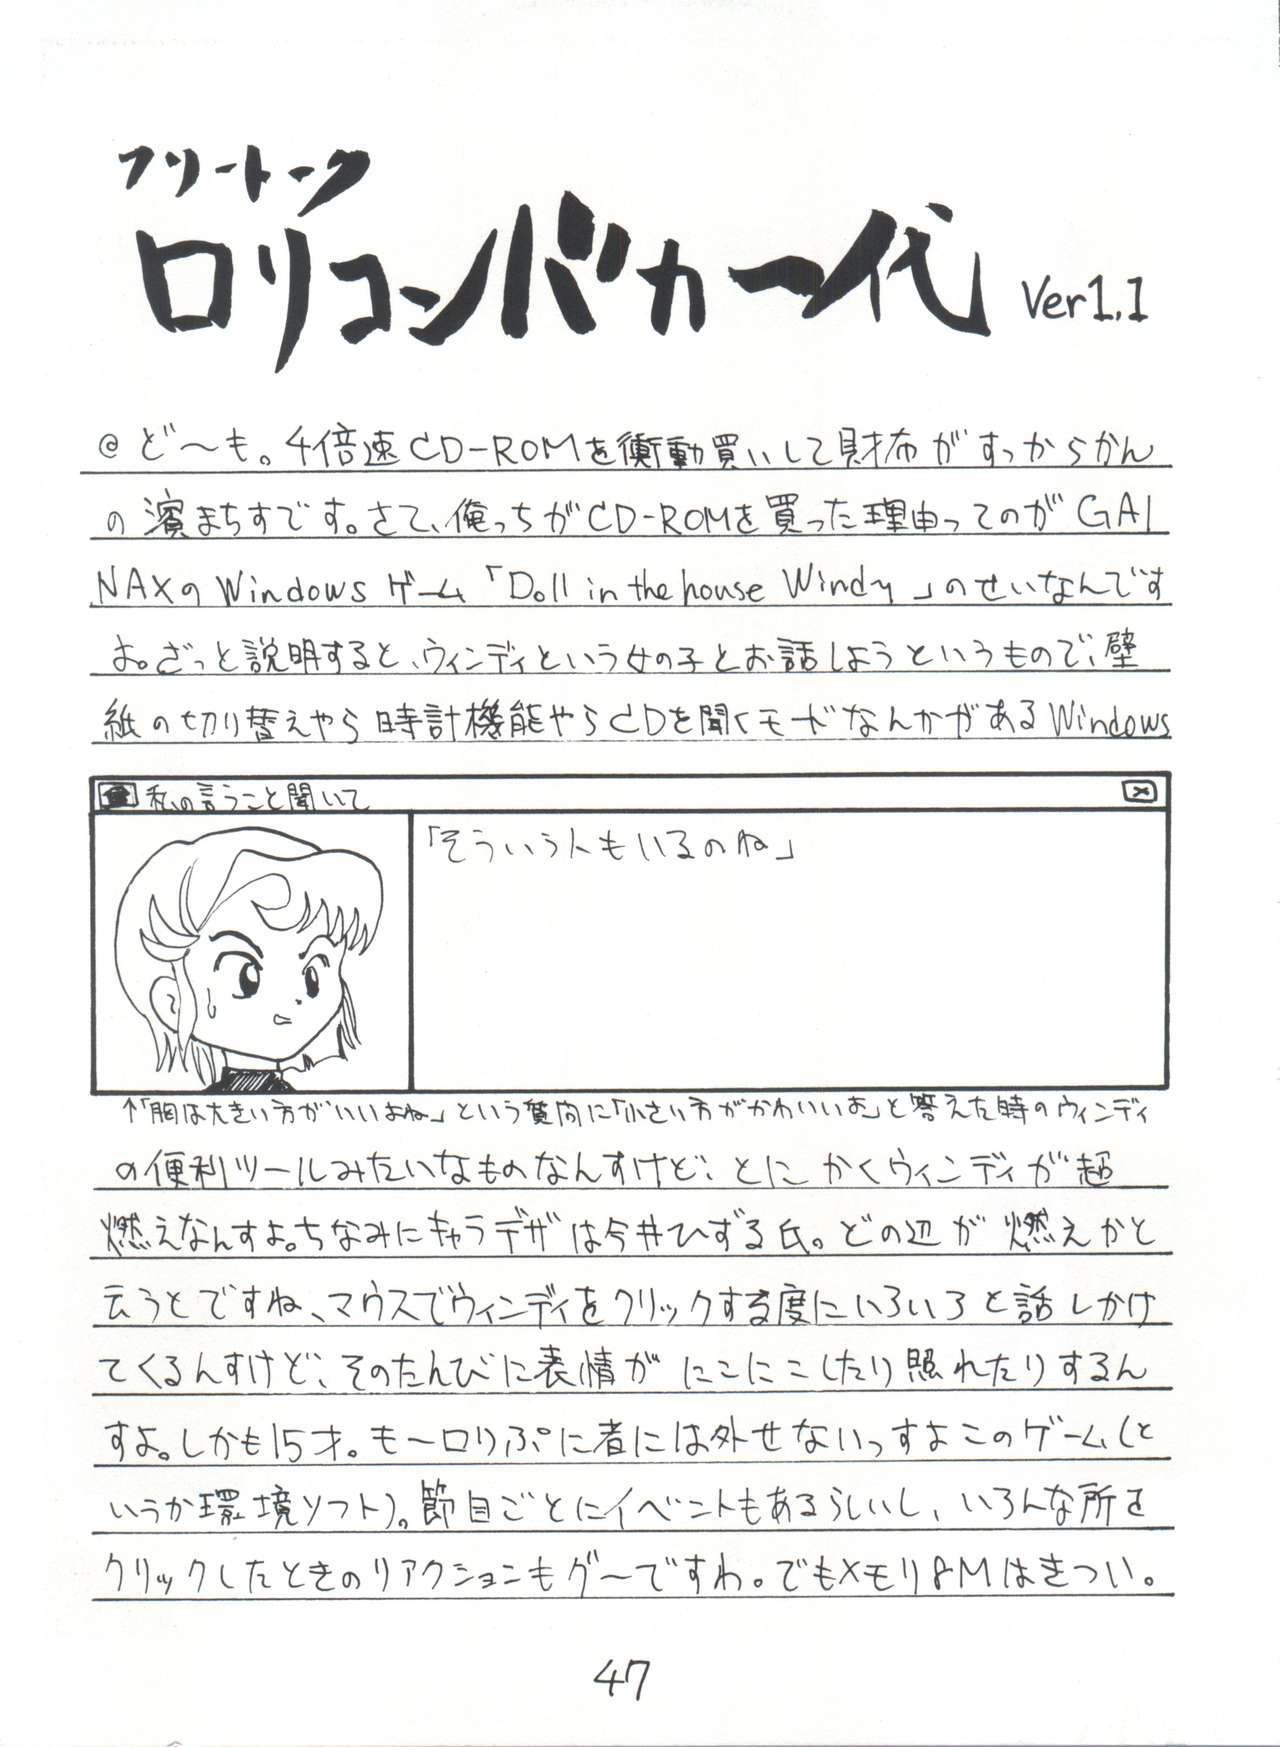 フリートーク
ロリコンバカ一代 Ver1.1
@ ど〜も。4倍速CD-ROMを衝動買いして財布がすっからかん
の濱まちすです。さて、俺っちがCD-ROMを買った理由ってのがGAI
NAXのWindowsゲーム「Doll in the house Windy」のせいなんです
よ。ざっと説明すると、ウィンディという女の子とお話しようというもので、壁
紙の切り替えやら時計機能やらCDを聞くモードなんかがあるWindows
私の言うこと聞いて
「そういう人もいるのね」
↑「胸は大きい方がいいよね」という質問に「小さい方がかわいいよ」と答えた時のウィンディ
の便利ツールみたいなものなんすけど、とにかくウィンディが超
燃えなんすよ。ちなみにキャラデザは今井ひずる氏。どの辺が燃えかと
云うとですね、マウスでウィンディをクリックする度にいろいろと話しかけ
てくるんすけど、そのたんびに表情がにこにこしたり照れたりするん
すよ。しかも15才。も〜ロリぷに者には外せないっすよこのゲーム(と
いうか環境ソフト)。節目ごとにイベントもあるらしいし、いろんな所を
クリックしたときのリアクションもグ〜ですわ。でもメモリ8Mはきつい。
47